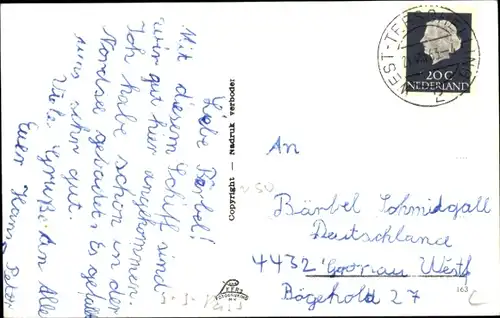 Liebe Bärbel!
Mit diesem Schiff sind
wir gut hier angekommen.
Ich habe schon in der
Nordsee gebadet. Es gefällt
uns sehr gut.
Viele Grüße an Alle
Euer Hans Peter
Copyright — Nadruk verboden
WEST-TERSCHELLING
20 C
NEDERLAND
An
Bärbel Schmidgall
Deutschland
4432 Gronau Westf
Bögehold 27
163